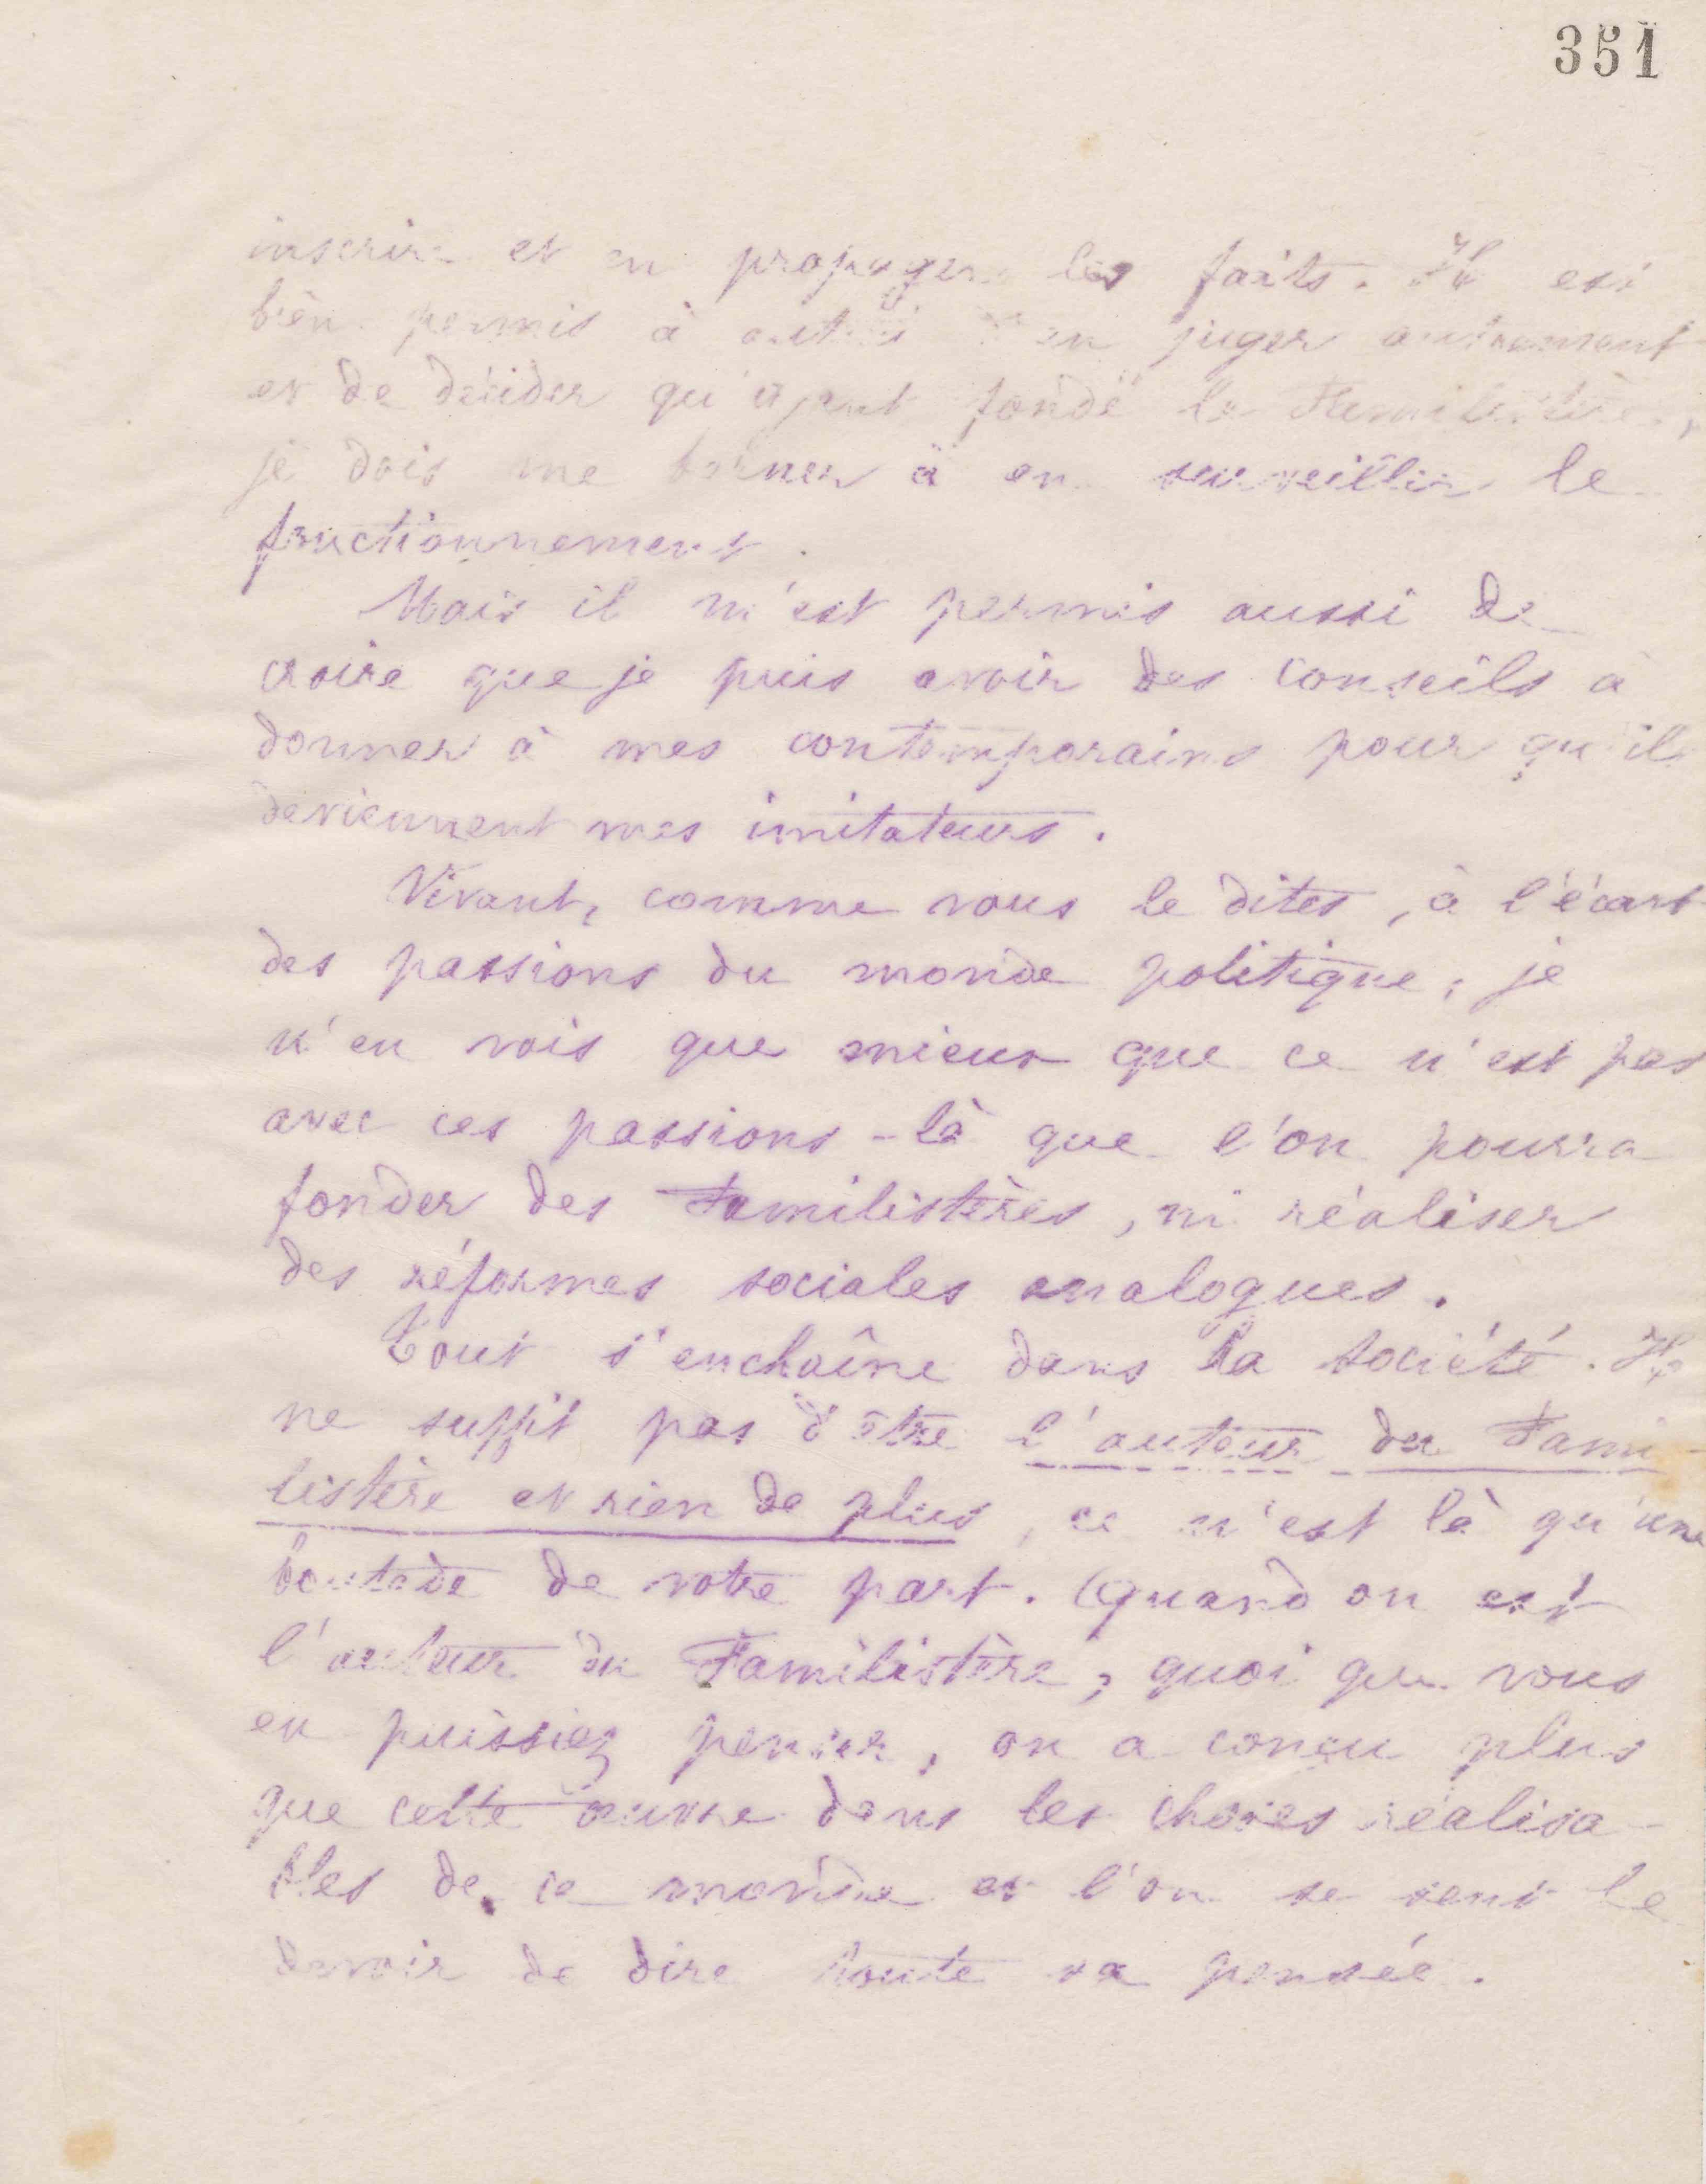 351
inscrire et en propager les faits. Il est
bien permis à autrui d'en juger autrement
et de décider qu'ayant fondé le Familistère,
je dois me borner à en surveiller le
fonctionnement.
Mais il m'est permis aussi de
croire que je puis avoir des conseils à
donner à mes contemporains pour qu'ils
deviennent mes imitateurs.
Vivant, comme vous le dites, à l'écart
des passions du monde politique, je
n'en vois que mieux que ce n'est pas
avec ces passions-là que l'on pourra
fonder des Familistères, ni réaliser
des réformes sociales analogues.
Tout s'enchaîne dans la société. Il
ne suffit pas d'être l'auteur du Fami-
listère et rien de plus, ce n'est là qu'une
boutade de votre part. Quand on est
l'auteur du Familistère, quoi que vous
en puissiez penser, on a conçu plus
que cette œuvre dans les choses réalisa-
bles de ce monde et l'on se sent le
devoir de dire toute sa pensée.